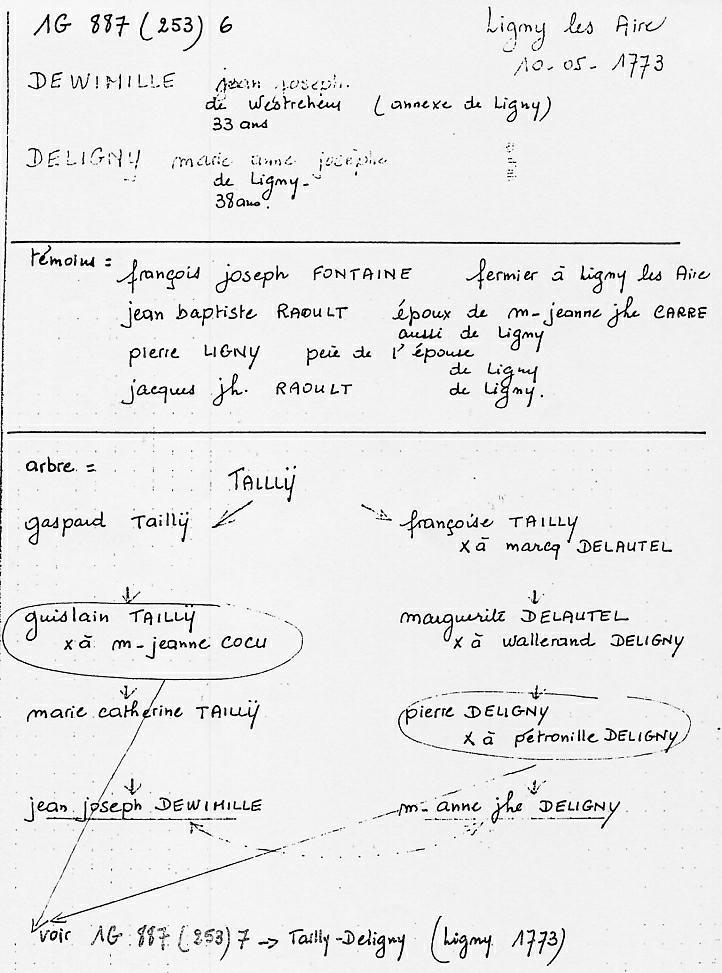 1G 887 (253) 6
Ligny les Aire
10-05-1773
DEWIMILLE jean joseph.
de Westrehem (annexe de Ligny)
33 ans
DELIGNY marie anne josèphe
de Ligny-
38 ans.
témoins =
françois joseph FONTAINE fermier à Ligny les Aire
jean baptiste RAOULT époux de m-jeanne jhe CARRE
aussi de Ligny
pierre LIGNY père de l'épouse
de Ligny
jacques jh. RAOULT de Ligny.
arbre =
TAILLŸ
gaspard TaillŸ françoise TAILLY
x à marcq DELAUTEL
guislain TAILLŸ marguerite DELAUTEL
x à m-jeanne COCU x à wallerand DELIGNY
marie catherine TAILLŸ pierre DELIGNY
x à pétronille DELIGNY
jean joseph DEWIMILLE m-anne jhe DELIGNY
voir 1G 887 (253) 7 → Tailly-Deligny (Ligny 1773)